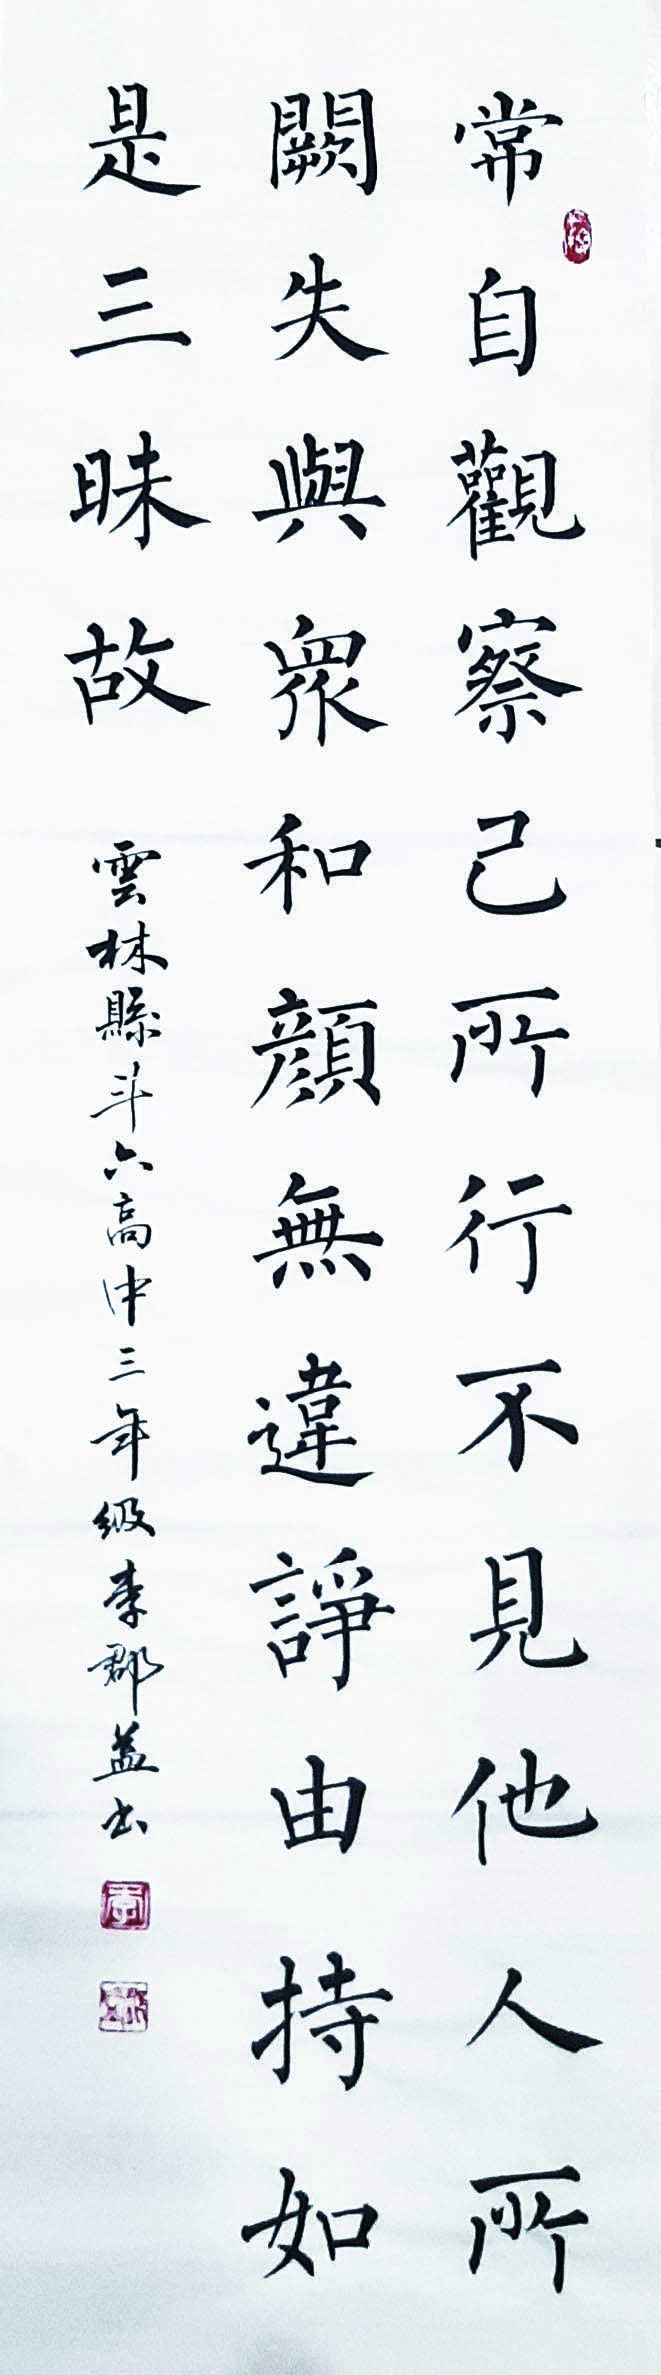 常自觀察己所行不見他人所
闕失與眾和顏無違諍由持如
是三昧故
雲林縣斗六高中三年級李郡益書